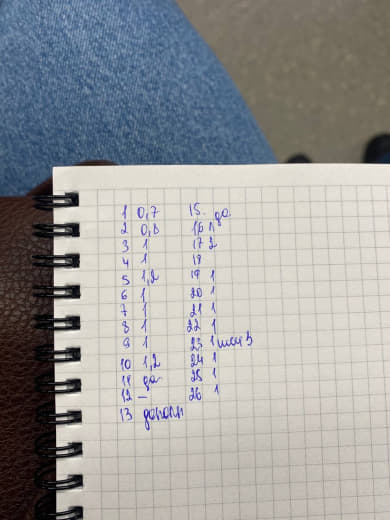 1 0,7
2 0,8
3 1
4 1
5 1,2
6 1
7 1
8 1
9 1
10 1,2
11 да
12 –
13 допопн
15. да
16 1
17 2
18
19 1
20 1
21 1
22 1
23 1 или 3
24 1
25 1
26 1